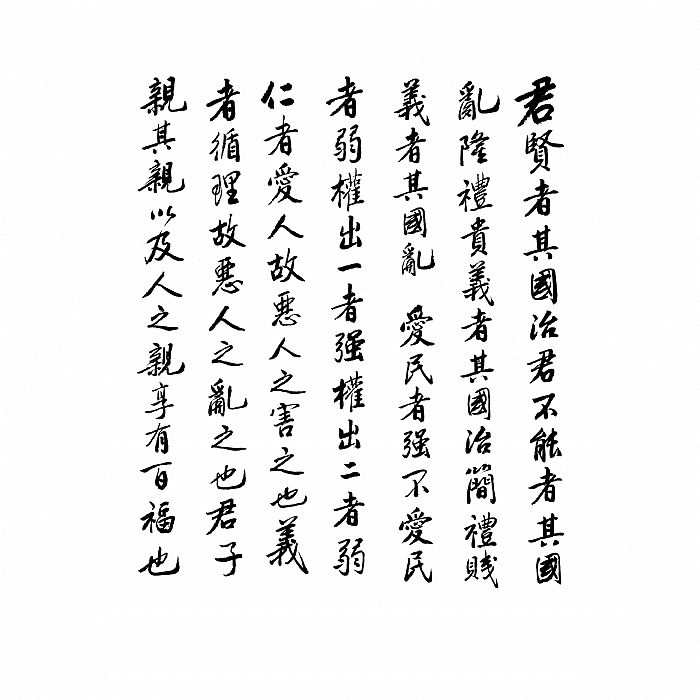 君賢者其國治君不能者其國
亂隆禮貴義者其國治簡禮賤
義者其國亂 愛民者强不愛民
者弱權出一者强權出二者弱
仁者愛人故惡人之害之也義
者循理故惡人之亂之也君子
親其親以及人之親享有百福也